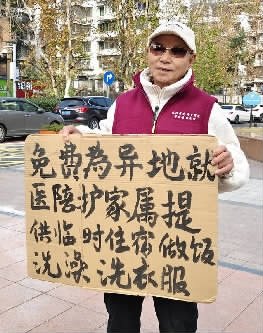 免费為异地就
医陪护家属提
供临时住宿做饭
洗澡洗衣服